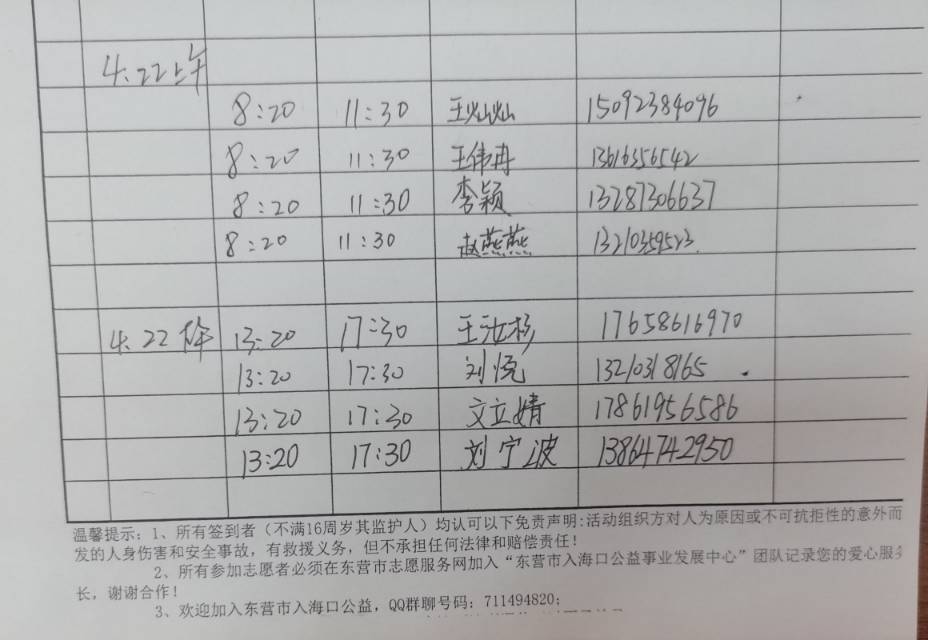 4.22上午
8:20 11:30 王灿灿 15092384096
8:20 11:30 王伟冉 13616356542
8:20 11:30 李颖 13287306637
8:20 11:30 赵燕燕 13210359523
4.22下午 13:20 17:30 王汝杉 17658616970
13:20 17:30 刘悦 13210318165
13:20 17:30 文立婧 17861956586
13:20 17:30 刘宁波 13864742950
温馨提示：1、所有签到者（不满16周岁其监护人）均认可以下免责声明:活动组织方对人为原因或不可抗拒性的意外而
发的人身伤害和安全事故，有救援义务，但不承担任何法律和赔偿责任！
2、所有参加志愿者必须在东营市志愿服务网加入“东营市入海口公益事业发展中心”团队记录您的爱心服务
长，谢谢合作！
3、欢迎加入东营市入海口公益，QQ群聊号码：711494820;